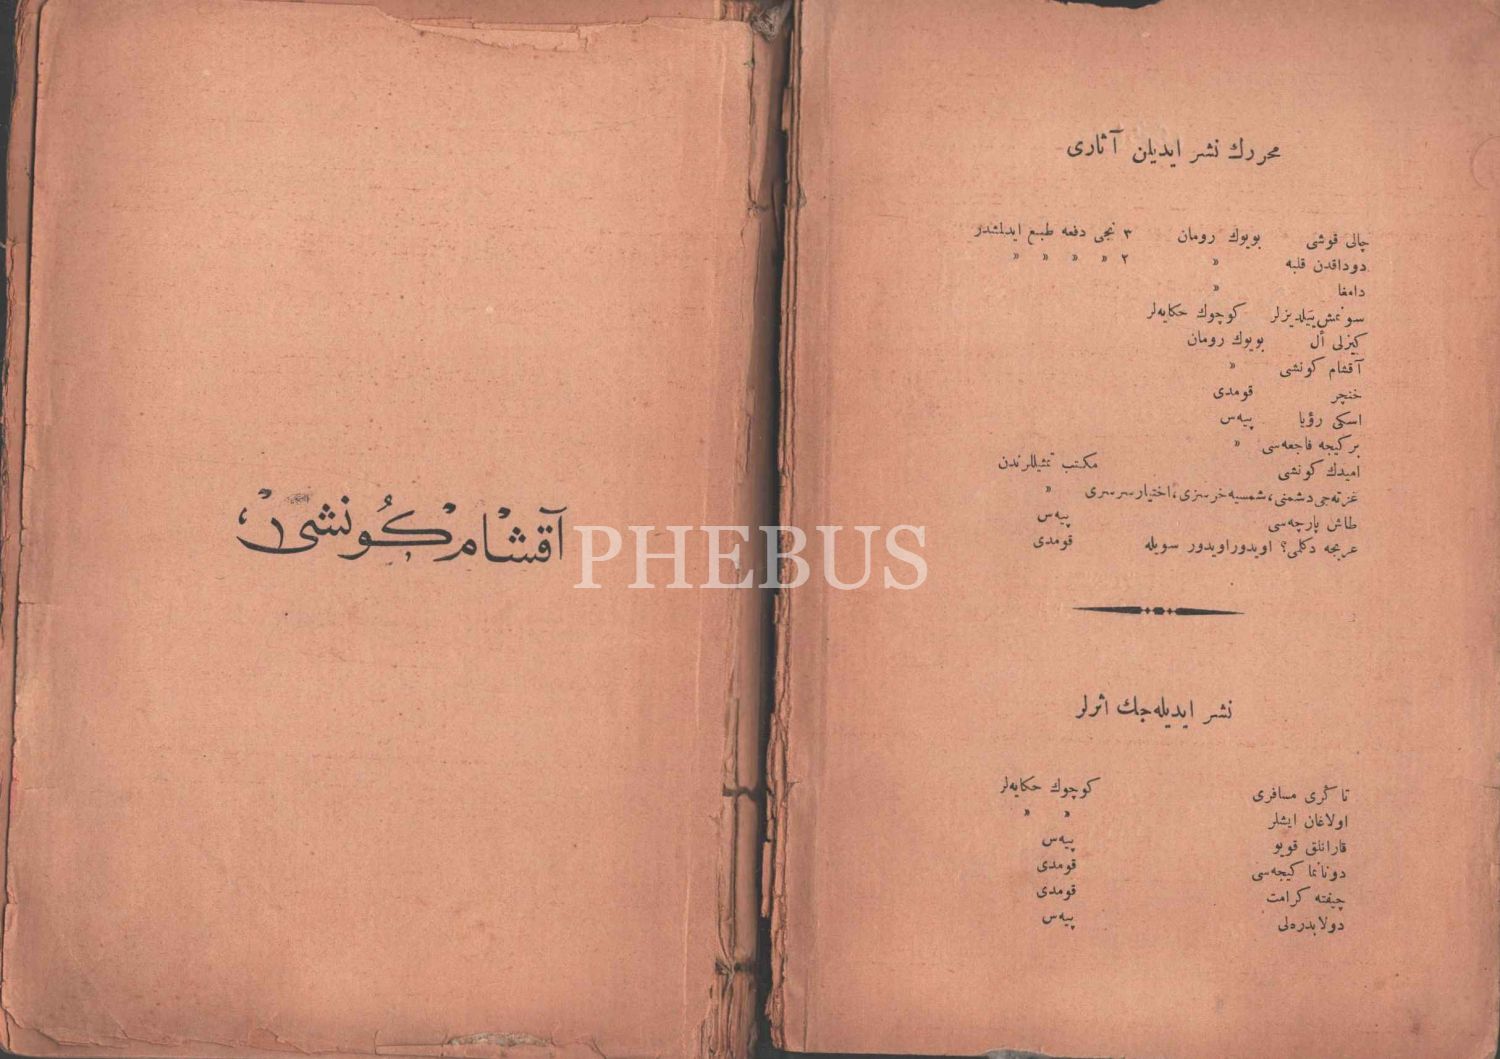 محررك نشر ايديلن آثارى
چالى قوشى بويوك رومان ۳ نجى دفعه طبع ايدلمشدر
دوداقدن قلبه » ۲ » » » »
دامغا »
سونمش ييلديزلر كوچوك حكايه‌لر
كيزلى أل بويوك رومان
آقشام كونشى »
خنچر قومدى
اسكى رؤيا پيه‌س
بر كيجه فاجعه‌سى »
اميدك كونشى مكتب تمثيللرندن
غزته‌جى دشمنى، شمسيه خرسزى، اختيار سرسرى »
طاش پارچه‌سى پيه‌س
عربجه دكلمى؟ اويدور اويدور سويله قومدى
نشر ايديله‌جك اثرلر
تاڭرى مسافرى كوچوك حكايه‌لر
اولاغان ايشلر » »
قارانلق قويو پيه‌س
دونانما كيجه‌سى قومدى
چيفته كرامت قومدى
دولابدره‌لى پيه‌س
آقشام كُونشى
PHEBUS